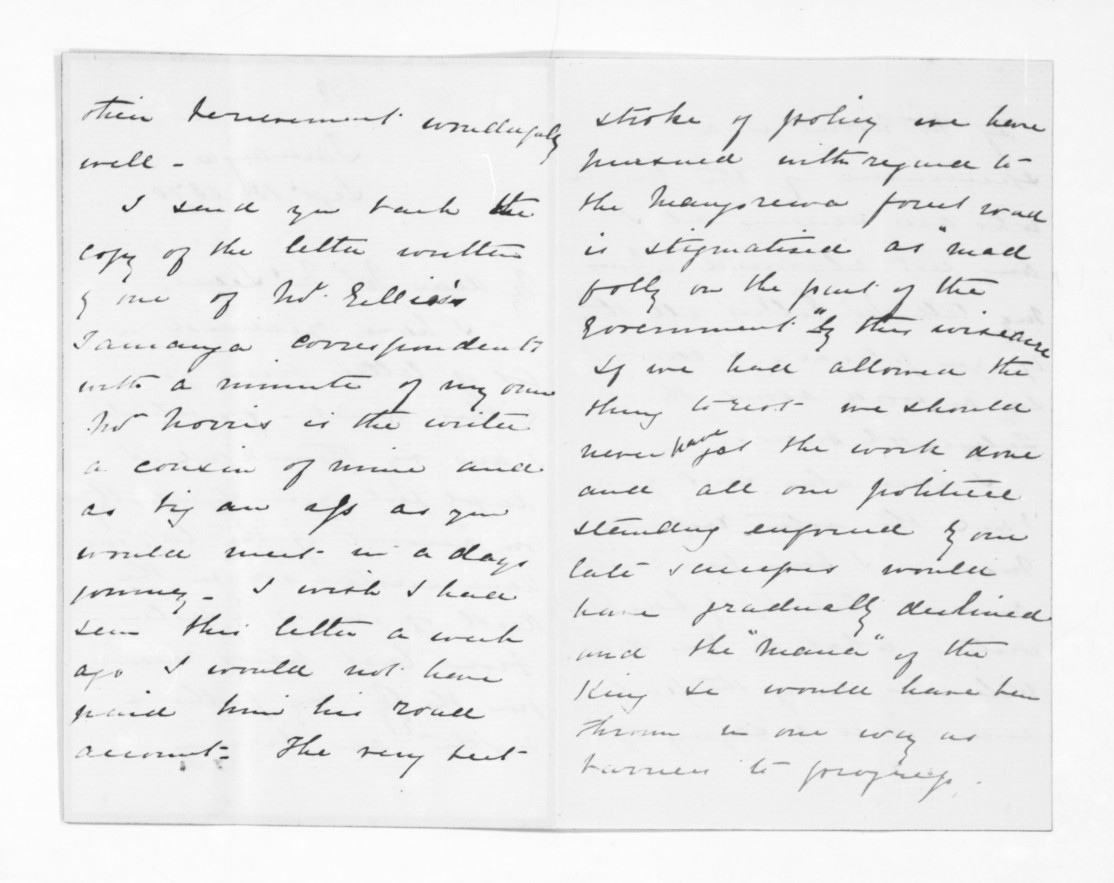 their bereavement wonderfully
well -
I send you back the
copy of the letter written
by one of Mr. Ellis's
Tauranga correspondents
with a minute of my own
Mr Norris is the writer
a cousin of mine and
as big an ass as you
would meet in a days
journey - I wish I had
seen this letter a week
ago I would not have
paid him his road
account - The very best
stroke of policy we have
pursued with regard to
the Mangorewa forest road
is stigmatised as "mad
folly on the part of the
Government" by this wiseacre
If we had allowed the
thing to rest we should
never have got the work done
and all our political
standing enjoyed by our
late successes would
have gradually declined
and the "mana" of the
King &c would have been
thrown in our way as
barriers to progress.